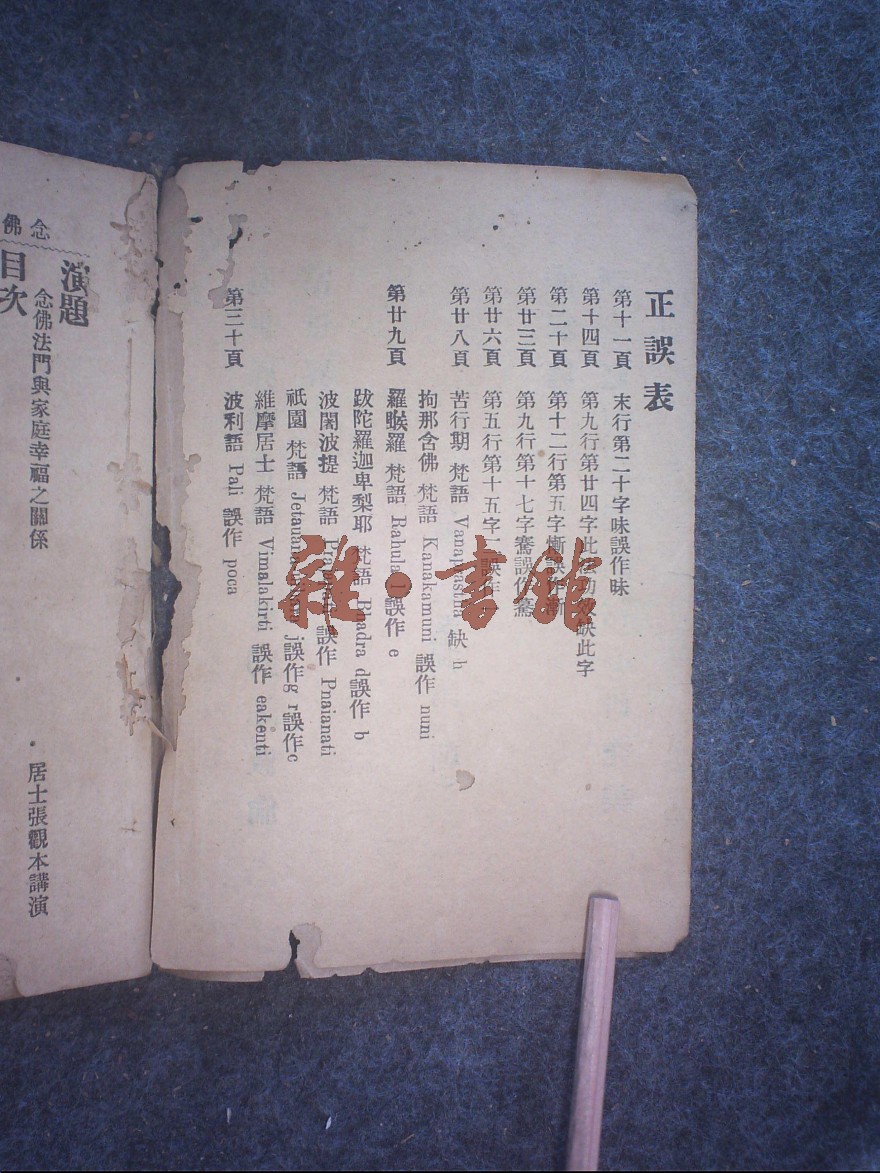 正誤表
第十一頁 末行第二十字味誤作昧
第十四頁 第九行第廿四字此 缺此字
第二十頁 第十二行第五字慚誤作
第廿三頁 第九行第十七字騫誤作
第廿六頁 第五行第十五字 誤作
第廿八頁 苦行期 梵語 缺 h
拘那含佛 梵語 Kanakamuni 誤作 numi
第廿九頁 羅睺羅 梵語 Rahula 誤作 e
跋陀羅迦卑梨耶 梵語 Bhadra d誤作 b
波闍波提 梵語 誤作 Pnaianati
祇園 梵語 j誤作g r誤作c
維摩居士 梵語 Vimalakirti 誤作 eakenti
第三十頁 波利語 Pali 誤作 poca
念佛
演題
念佛法門與家庭幸福之關係
居士張觀本講演
目次
雜·書館